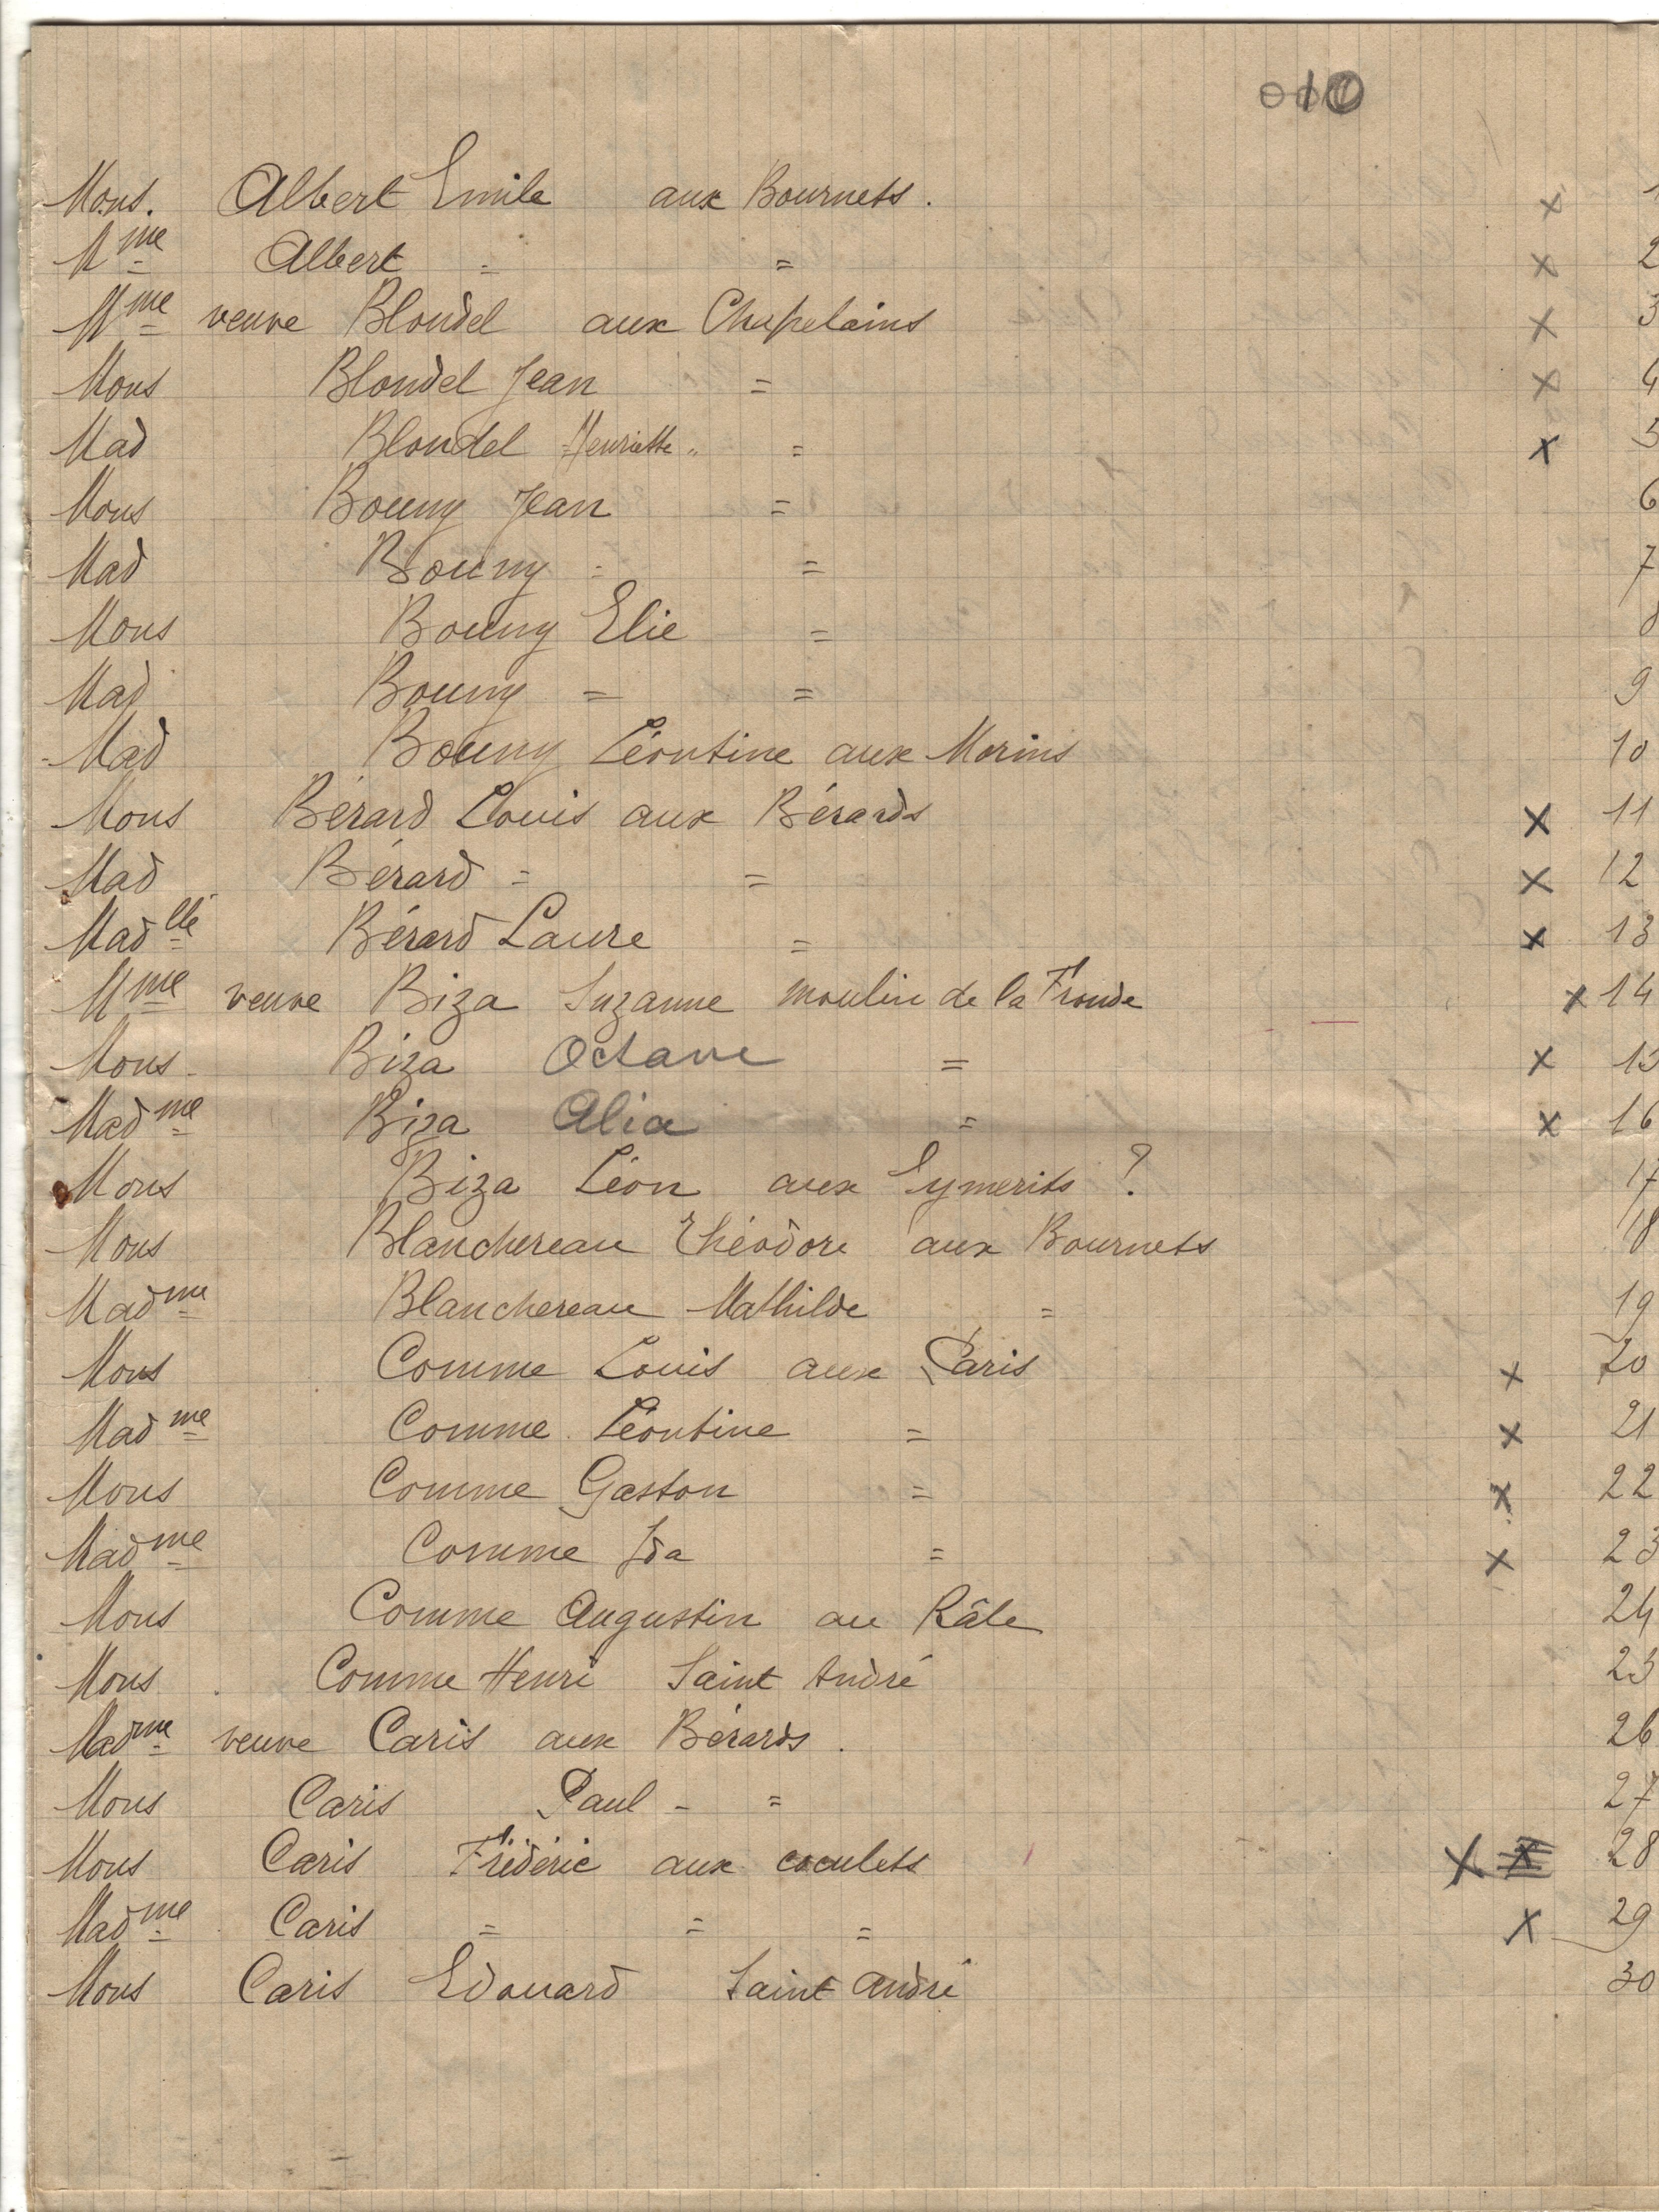 010
Mons. Albert Emile aux Bournets. x 1
Mme Albert = = x 2
Mme veuve Blondel aux Chapelains x 3
Mons Blondel Jean = x 4
Mad Blondel Henriette = x 5
Mons Bouny Jean = 6
Mad Bouny = = 7
Mons Bouny Elie = 8
Mad Bouny = = 9
Mad Bouny Léontine aux Morins 10
Mons Bérard Louis aux Bérards x 11
Mad Bérard = = x 12
Madlle Bérard Laure = x 13
Mme veuve Biza Suzanne moulin de la Fronde x 14
Mons Biza Octave = x 15
Madme Biza Alia = x 16
Mons Biza Léon aux Eymerits ? 17
Mons Blanchereau Théodore aux Bournets 18
Madme Blanchereau Mathilde = 19
Mons Comme Louis aux Caris x 20
Madme Comme Léontine = x 21
Mons Comme Gaston = x 22
Madme Comme Ida = x 23
Mons Comme Augustin au Râle 24
Mons Comme Henri Saint André 25
Madme veuve Caris aux Bérards. 26
Mons Caris Paul - = 27
Mons Caris Frédéric aux coculets x x 28
Madme Caris = = = x 29
Mons Caris Edouard Saint André 30